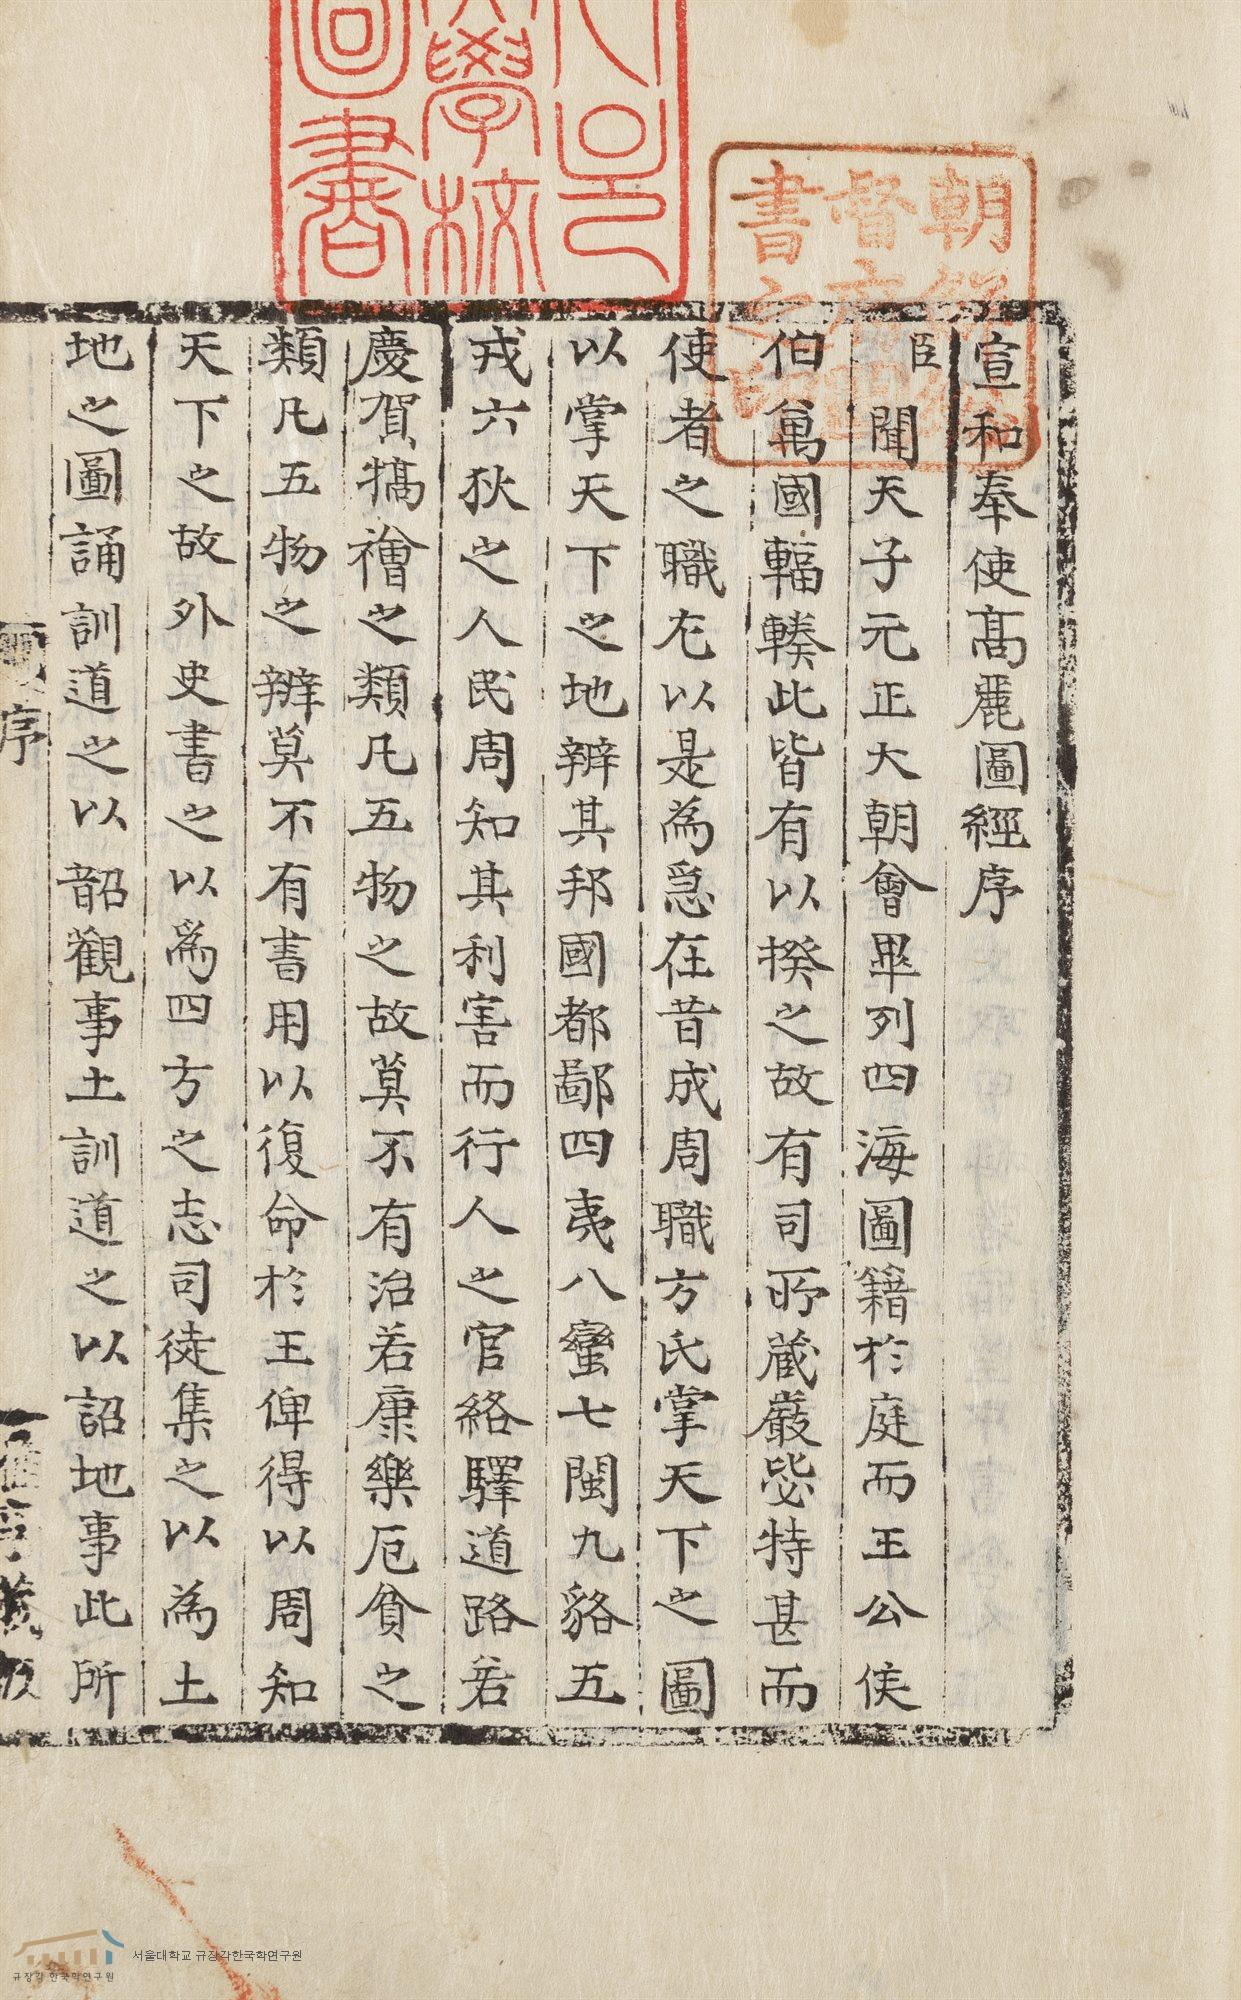 宣和奉使高麗圖經序
臣聞天子元正大朝會畢列四海圖籍於庭而王公侯
伯萬國輻輳此皆有以揆之故有司所蔵嚴毖特甚而
使者之職尤以是為急在昔成周職方氏掌天下之圖
以掌天下之地辨其邦國都鄙四夷八蠻七閩九貉五
戎六狄之人民周知其利害而行人之官絡驛道路若
慶賀犒禬之類凡五物之故莫不有治若康樂厄貧之
類凡五物之辨莫不有書用以復命於王俾得以周知
天下之故外史書之以為四方之志司徒集之以為土
地之圖誦訓道之以詔觀事土訓道之以詔地事此所
序
朝鮮總
督府圖
書之印
學校
圖書
서울대학교 규장각한국학연구원
규장각 한국학연구원